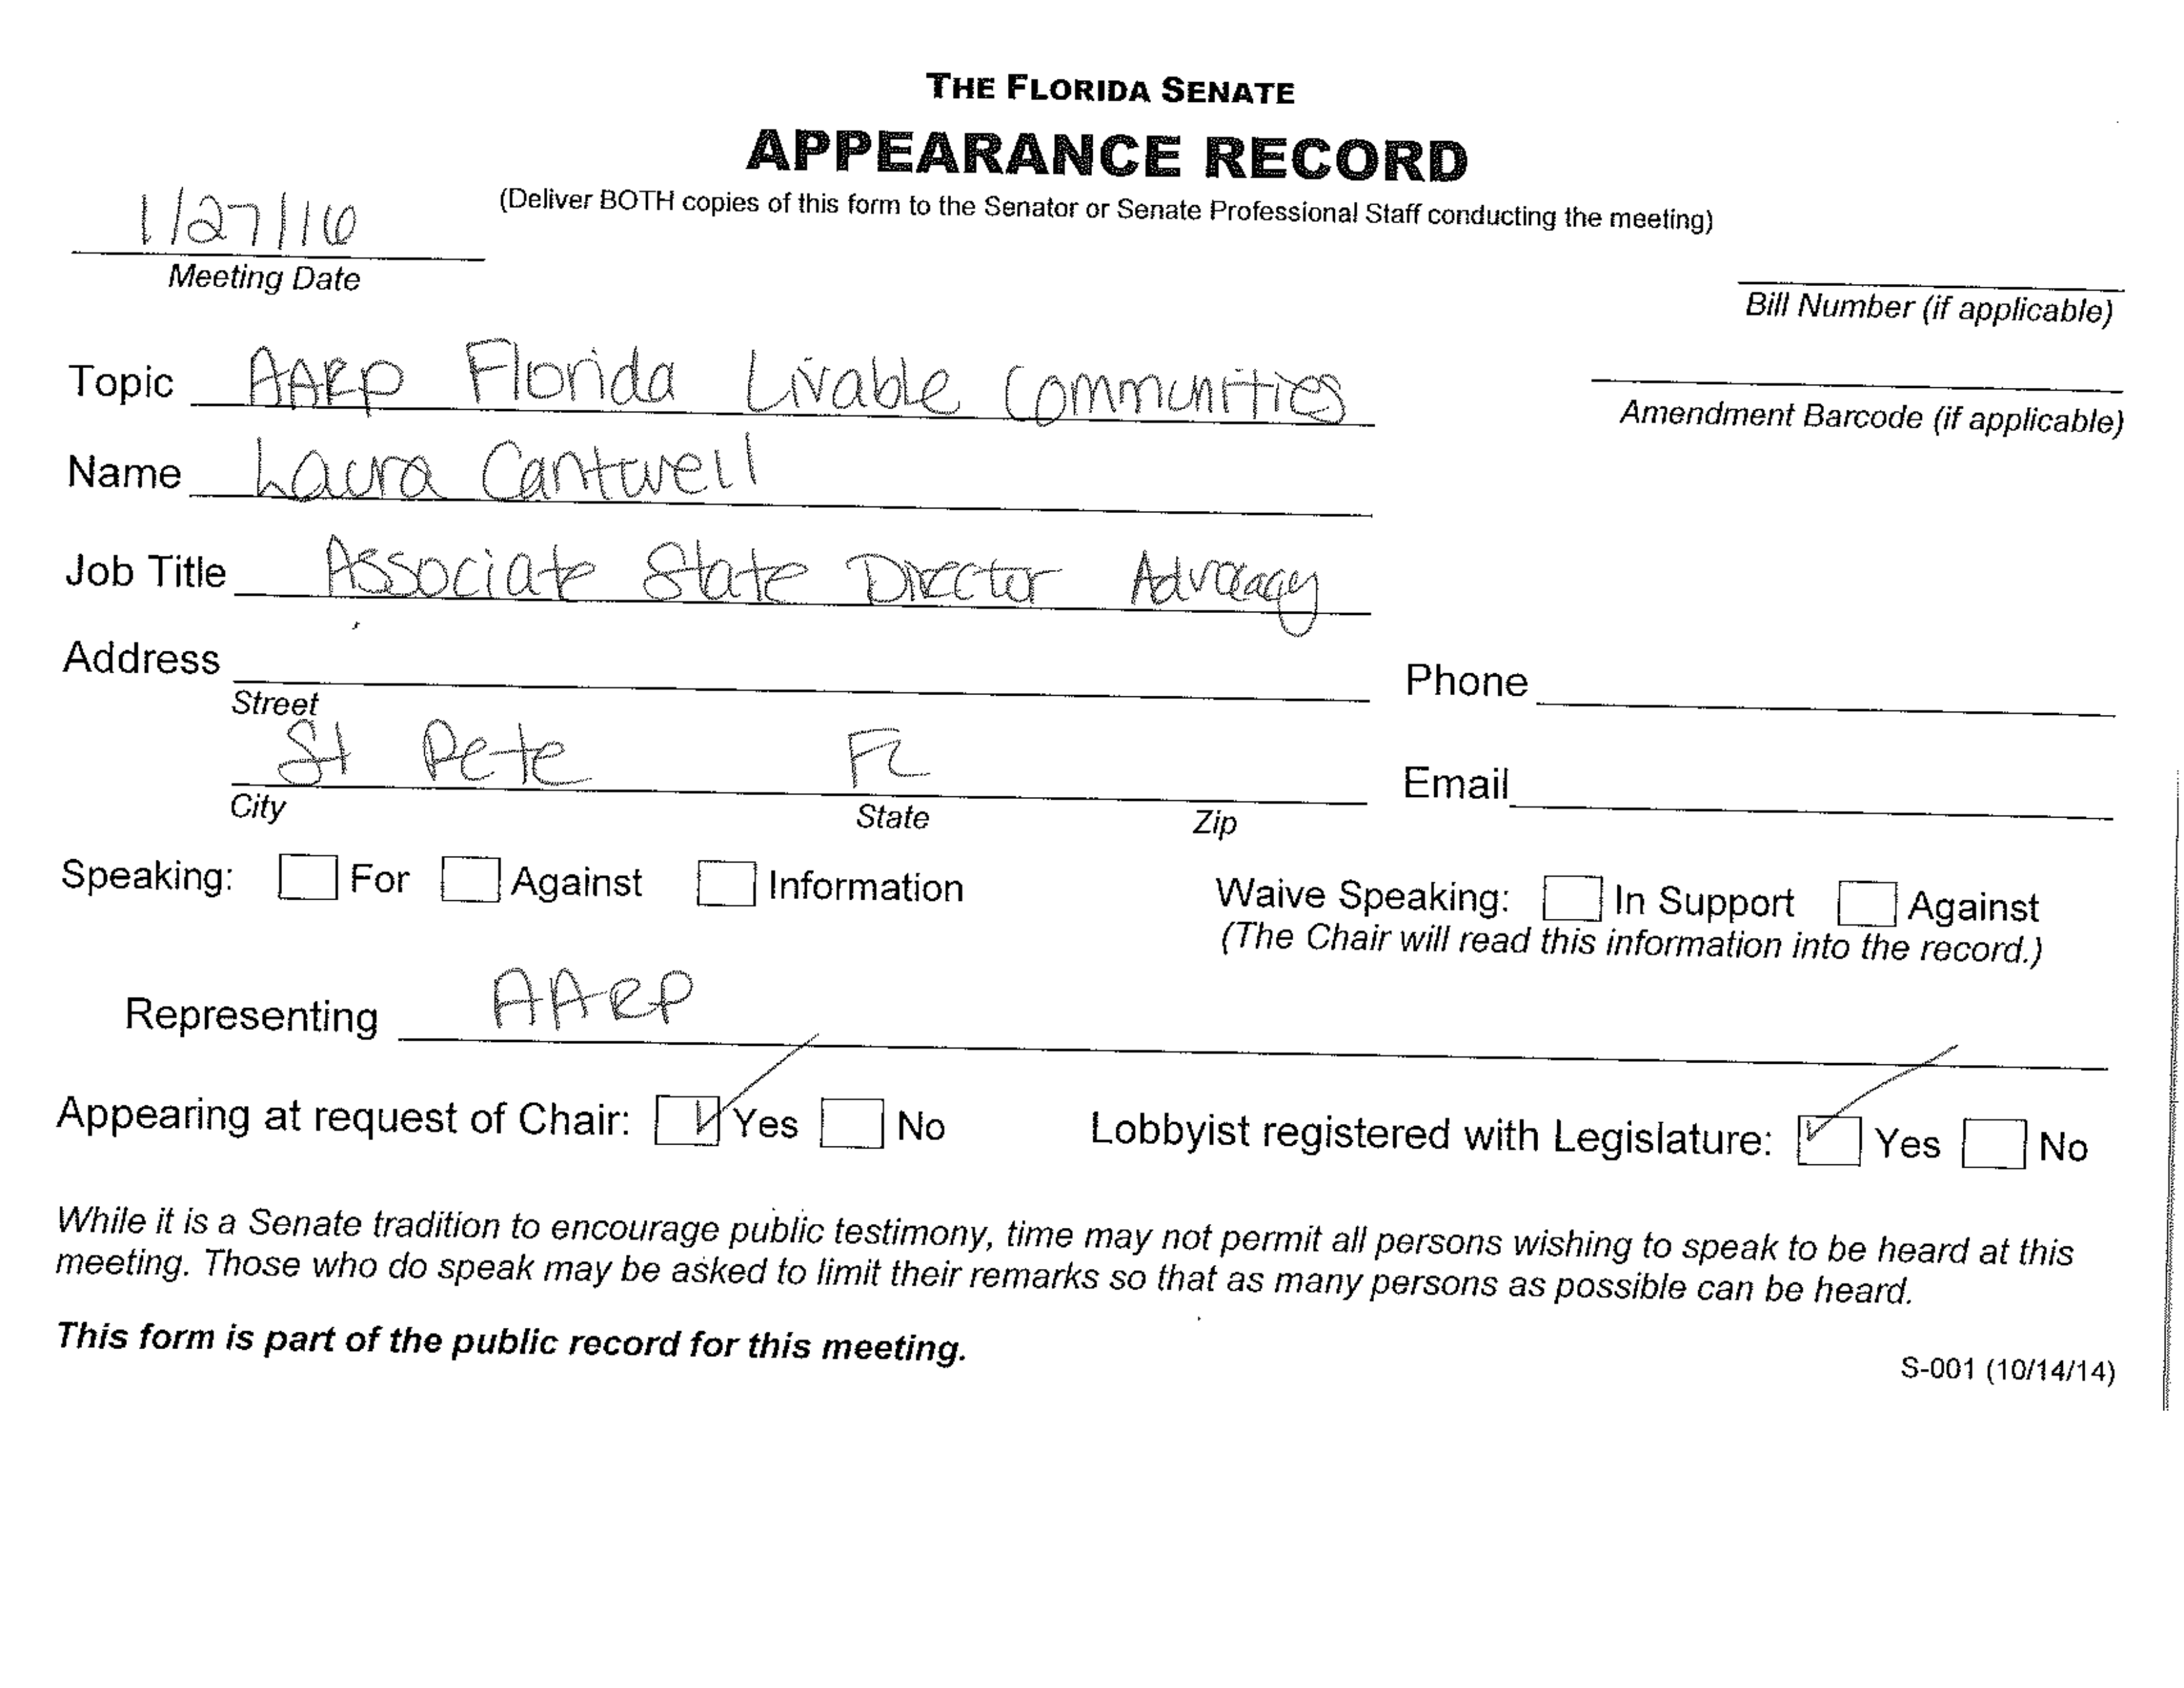 THE FLORIDA SENATE
APPEARANCE RECORD
(Deliver BOTH copies of this form to the Senator or Senate Professional Staff conducting the meeting)
1/27/16
Meeting Date
Bill Number (if applicable)
Topic AARP Florida Livable Communities
Amendment Barcode (if applicable)
Name Laura Cantwell
Job Title Associate State Director Advocacy
Address
Phone
Street
St Pete FL
Email
City State Zip
Speaking: For Against Information
Waive Speaking: In Support Against
(The Chair will read this information into the record.)
Representing AARP
Appearing at request of Chair: Yes No
Lobbyist registered with Legislature: Yes No
While it is a Senate tradition to encourage public testimony, time may not permit all persons wishing to speak to be heard at this
meeting. Those who do speak may be asked to limit their remarks so that as many persons as possible can be heard.
This form is part of the public record for this meeting.
S-001 (10/14/14)